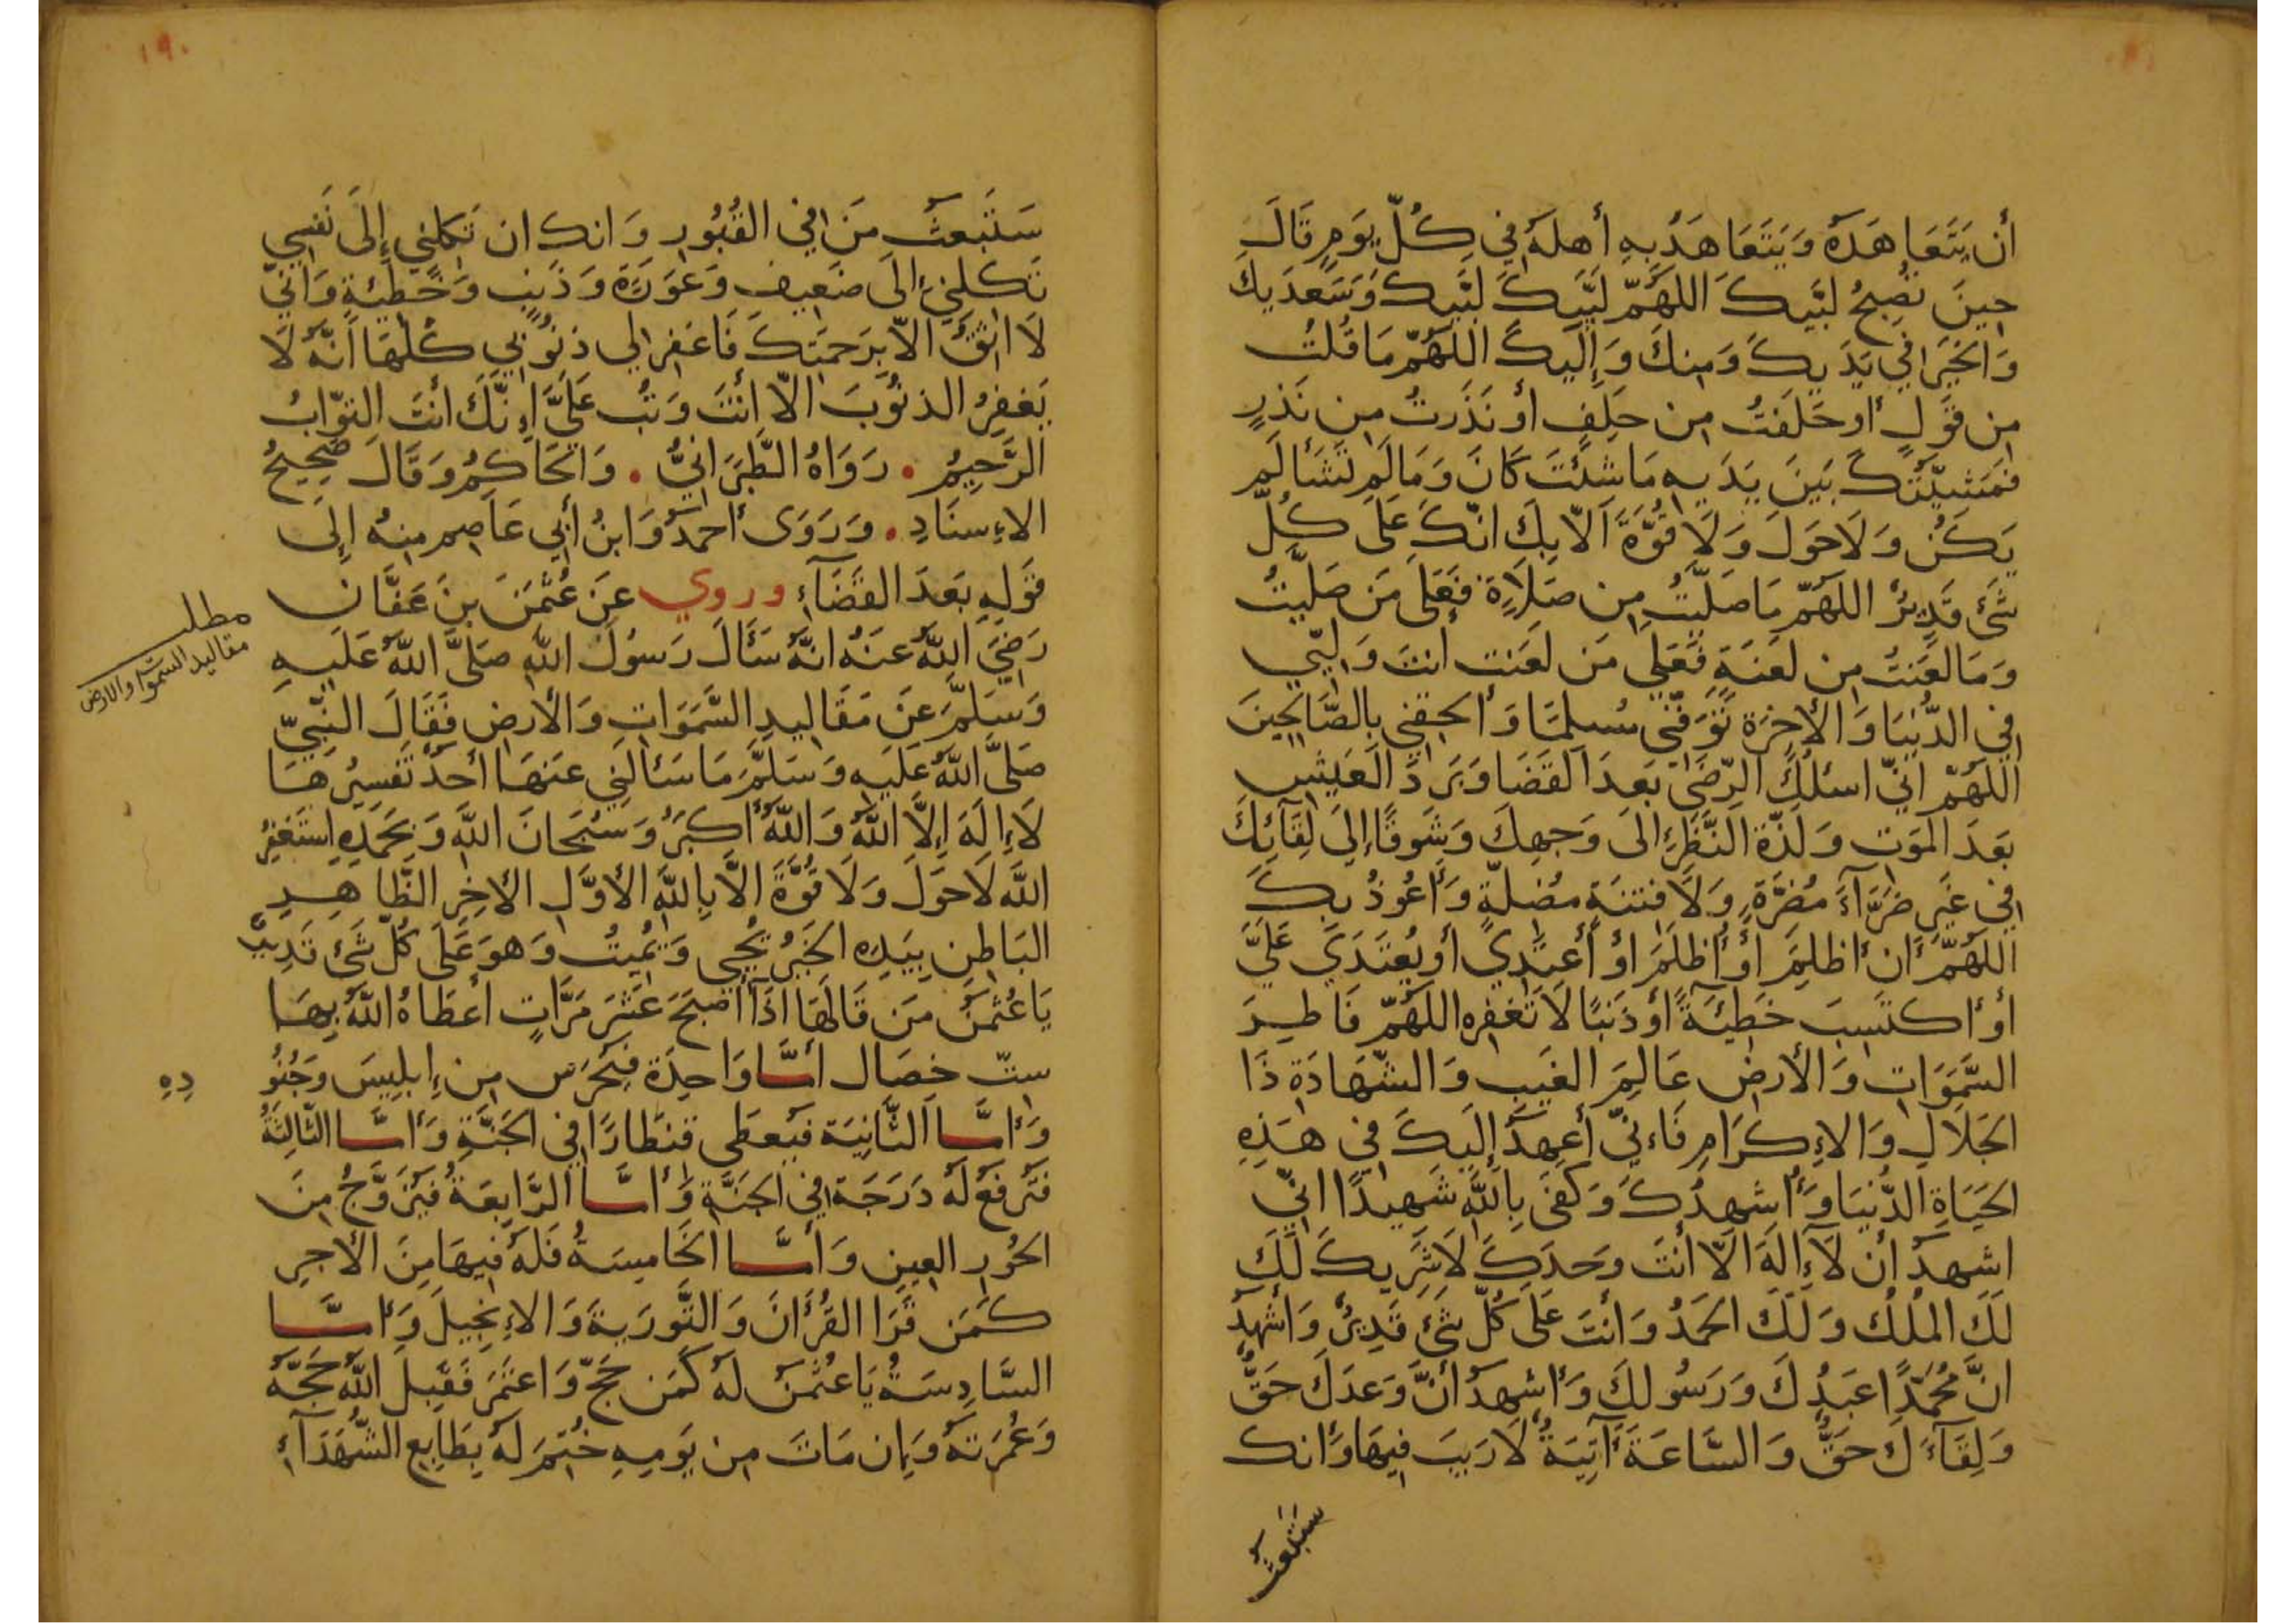 أَن يَتَعَاهَدَهُ وَيَتَعَاهَدُ بِهِ أَهلَهُ فِي كُلِّ يَومٍ قَالَ
حِينَ تُصبِحُ لَبَّيكَ اللَّهُمَّ لَبَّيكَ لَبَّيكَ وَسَعدَيكَ
وَالخَيرُ فِي يَدَيكَ وَمِنكَ وَإِلَيكَ اللَّهُمَّ مَا قُلتُ
مِن قَولٍ أَو حَلَفتُ مِن حَلِفٍ أَو نَذَرتُ مِن نَذرٍ
فَمَشِيَّتُكَ بَينَ يَدَيهِ مَا شِئتَ كَانَ وَمَا لَم تَشَأ لَم
يَكُن وَلَا حَولَ وَلَا قُوَّةَ الَّا بِكَ انَّكَ عَلَى كُلِّ
شَئ قَدِيرٌ اللَّهُمَّ مَا صَلَّيتُ مِن صَلَاةٍ فَعَلَى مَن صَلَّيتَ
وَمَا لَعَنتُ مِن لَعنَةٍ فَعَلَى مَن لَعَنت انتَ وَلِيِّي
فِي الدُّنيَا وَالأخِرَة تَوَفَّنِي مُسلِمًا وَأَلحِقنِي بِالصَّالِحِينَ
اللَّهُمَّ انِّي اسئَلُكَ الرِّضَى بَعدَ القَضَا وَبَردَ العَيشِ
بَعدَ المَوتِ وَلَذَّة النَّظَرِ الَى وَجهِكَ وَشَوقًا إِلَى لِقَآئِكَ
فِي غَيرِ ضَرَّآءَ مُضِرَّةٍ وَلَا فِتنَةٍ مُضِلَّةٍ وَأَعُوذُ بِكَ
اللَّهُمَّ أَن أَظلِمَ أَو أُظلَمَ اوأَعتَدِي أَو يُعتَدَي عَلَيَّ
أَو أَكتَسِبَ خَطِيَئةً أَو ذَنبًا لَا تَغفِره اللَّهُمَّ فَاطِرَ
السَّمَوَاتِ وَالأَرضِ عَالِمَ الغَيبِ وَالشَّهَادَةِ ذَا
الجَلَالِ وَالإِكرَامِ فَاءِنِّي أَعهَدُ إِلَيكَ فِي هَذِهِ
الحَيَاةِ الدُّنيَا وَأُشهِدُكَ وَكَفَى بِاللَّهِ شَهِيدًا انِّي
اشهَدُ أَن لَآ إِلَهَ الَّا أَنتَ وَحدَكَ لَا شَرِيكَ لَكَ
لَكَ المُلكُ وَلَكَ الحَمدُ وَانتَ عَلَى كُلِّ شَئ قَدِيرٌ وَأَشهَدُ
انَّ مُحَمَّدًا عَبدُكَ وَرَسُولكَ وَأَشهَدُ أَنَّ وَعدَكَ حَقٌّ
وَلِقَآءَكَ حَقٌّ وَالسَّاعَةَ آتِيَةٌ لَا رَيبَ فِيهَا وَانك
ستبعث
١٩٠
سَتَبعَثُ مَن فِي القُبُورِ وَانك ان تَكِلنِي إِلَى نَفسِي
تَكِلنِي إِلَى ضَعِيفٍ وَعَورَةٍ وَذَنبٍ وَخَطِيئَةٍ وَانِّي
لَا اثِقُ الَّا بِرَحمَتِكَ فَاغفِر لِي ذنُوبِي كُلَّهَا انَّهُ لَا
يَغفِرُ الذنُوبَ الَّا أَنتَ وَتُب عَلَيَّ إِنَّكَ أَنتَ التوَّابُ
الرَّحِيمُ . رَوَاهُ الطَّبَرَانِيُّ . وَالحَاكِمُ وَقَالَ صَحِيحُ
الإِسنَادِ . وَرَوَى أَحمَدُ وَابنُ أَبِي عَاصِم مِنهُ إِلَى
قَولِهِ بَعدَ القَضَآءِ وروي عَن عُثمَنَ بنَ عَفَّان
رَضِيَ اللَّهُ عَنهُ انَّهُ سَئَالَ رَسُولَ اللَّهِ صَلَّى اللَّهُ عَلَيهِ
وَسَلَّمَ عَن مَقَالِيدِ السَّمَوَاتِ وَالأَرضِ فَقَالَ النَّبِيّ
صَلَّى اللَّهُ عَلَيهِ وَسَلَّمَ مَا سَئَالَنِي عَنهَا أَحَدٌ تَفسِيرُهَا
لَا إِلَهَ إِلَّا اللَّهُ وَاللَّهُ أَكبَرُ وَسُبحَانَ اللَّهِ وَبِحَمدِهِ استَغفِرُ
اللَّهَ لَا حَولَ وَلَا قُوَّةَ الَّا بِاللَّهِ الأَوَّلِ الأخِرِ الظَّاهِرِ
البَاطِنِ بِيَدِهِ الخَيرُ يُحيِي وَيُمِيتُ وَهوَ عَلَى كُلِّ شَئ قَدِيرٌ
يَا عُثمَنُ مَن قَالَهَا اذَآ أَصبَحَ عَشرَ مَرَّاتٍ أَعطَاهُ اللَّهُ بِهَا
سِتّ خِصَال أَمَّا وَاحِدَة فَيُحرَس مِن إِبلِيسَ وَجُنُو
دِهِ
وَأَمَّا الثَّانِيَة فَيُعطَى قِنطَارًا فِي الجَنَّةِ وَأَمَّا الثَّالِثَةُ
فَتُرفَعُ لَهُ دَرَجَة فِي الجَنَّةِ وَأَمَّا الرَّابِعَةُ فَيُزَوَّجُ مِنَ
الحُورِ العِينِ وَأَمَّا الخَامِسَةُ فَلَهُ فِيهَا مِنَ الأَجرِ
كَمَن قَرَا القُرأَنَ وَالتَّورَيةَ وَالإِنجِيلَ وَأَمَّا
السَّادِسَةُ يَا عُثمَنُ لَهُ كَمَن حَجَّ وَاعتَمَرَ فَقَبِلَ اللَّهُ حَجَّهُ
وَعُمرَتَهُ وَإِن مَاتَ مِن يَومِهِ خُتِمَ لَهُ بِطَابِعِ الشُّهَدَآءِ
مطلب
مقاليد السموات والارض